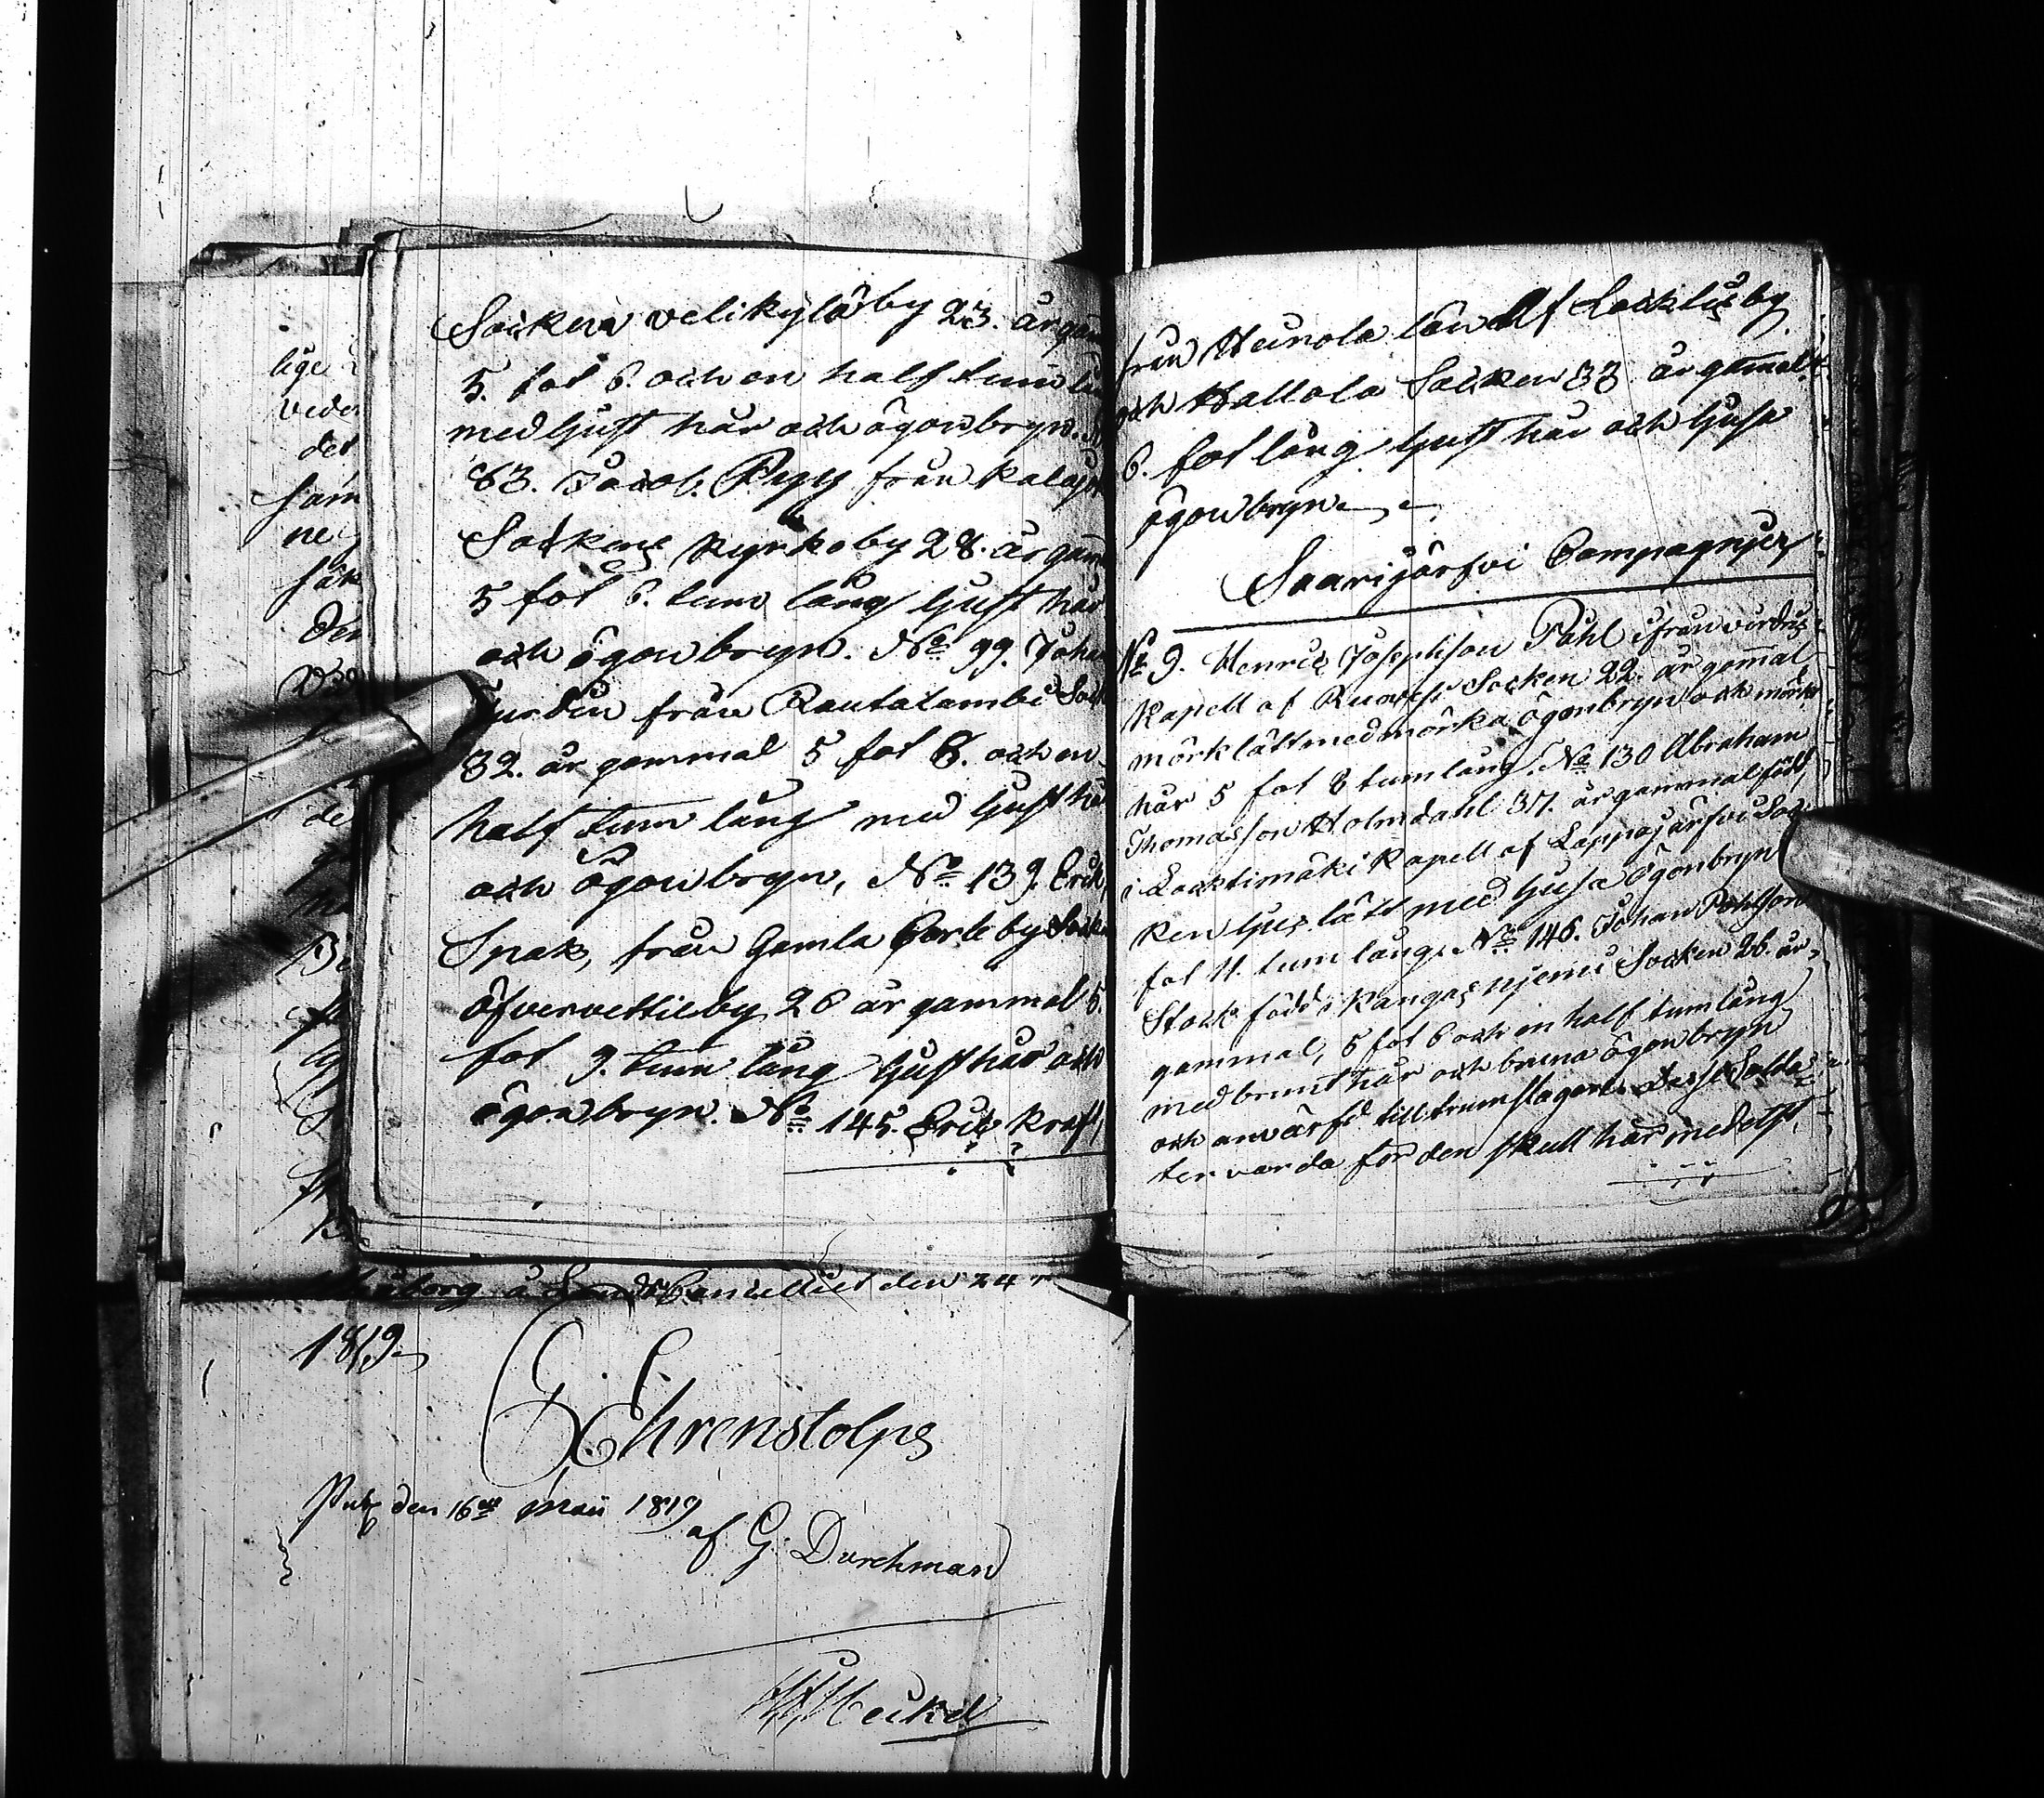 Sockens velikylä by 23. år gam
5. fot 6. och en half tum lån
med ljust hår och ögonbryn. N
63. Jacob Pyy från Kalajok
Sockens Kyrkoby 28. år gam
5 fot 6. tum lång ljust hår
och ögonbryn. No 99. Johan
från Rautalambi Sock
32. år gammal 5 fot 8. och en
half tum lång med ljust hå
och ögonbryn, No 139. Eric
Spak, från Gamla Carleby Socke
öfvervettil by 26 år gammal 5.
fot 9. tum lång ljust hår och
ögonbryn. No 145. Eric Kraft,
från Heinola län Af Lacktis by
och Hallola Socken 33 år gammal
6. fot lång ljust hår och ljusa
ögonbryn
Saarijärfvi Compagnie
No 9. Henric Josephson Påhl ifrån virdois
Kapell af Ruovesi Socken 22. år gammal
mörklätt med mörka ögonbryn och mörkt
hår 5 fot 8 tum lång. No 130 Abraham
Thomasson Holmdahl 37. år gammal född
i Lacktimäki Kapell af Lappajärfvi Soc
ken ljus lätt med ljusa ögonbryn
fot 11. tum lång. No 146. Johan Påhlson
Stock född i Kangasnjemi Socken 26. år
gammal, 5 fot 6 och en half tum lång
med brunt hår och bruna ögonbryn
och anvärfd till trumslagare. Desse Solda
ter varda för den skull här medelst,
lige
veder
det
häm
ne
håk
Den
de
å Lands Cancelliet den 24
1819
Ehrenstolpe
Publ den 16de Maii 1819
af G. Durchman